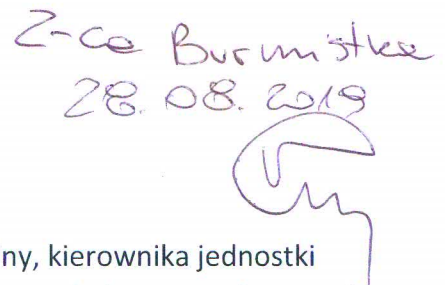 Z-ca Burmistrza
28.08.2019
ny, kierownika jednostki